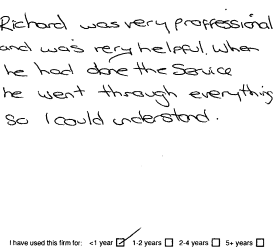 Richard was very proffessional
and was very helpful. When
he had done the Service
he went through everything
so I could understand.
I have used this firm for: <1 year ☑ 1-2 years ☐ 2-4 years ☐ 5+ years ☐